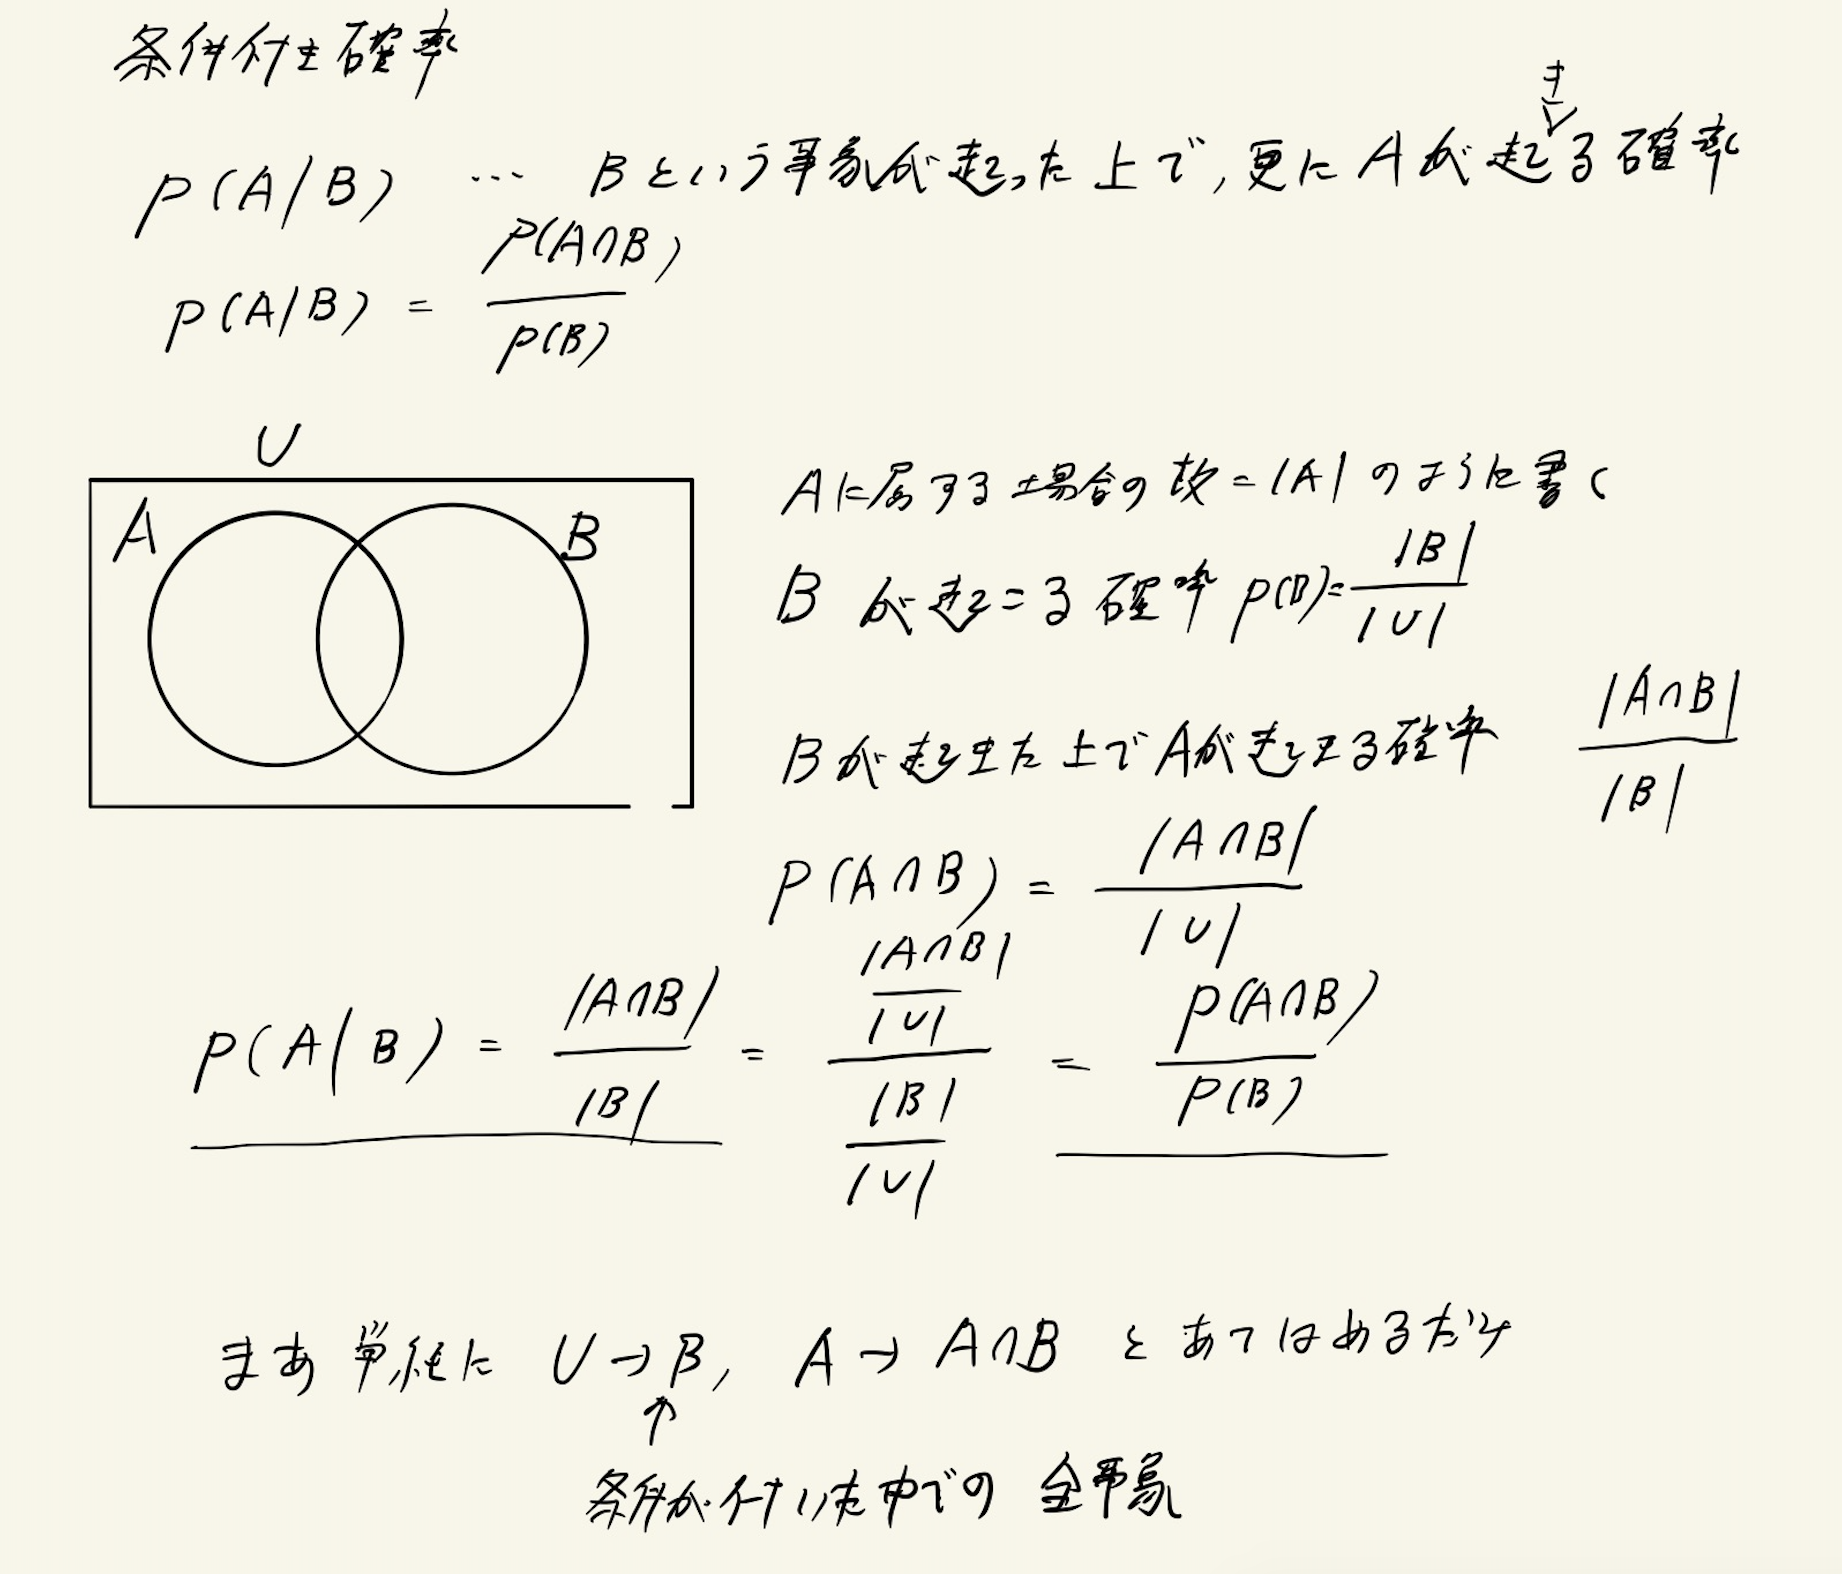 条件付き確率
P(A|B) … Bという事象が起った上で,更にAが起きる確率
P(A|B) = P(A∩B) / P(B)
U
A B
Aに属する場合の数=|A|のように書く
Bが起こる確率 P(B)= |B| / |U|
Bが起きた上でAが起きる確率 |A∩B| / |B|
P(A∩B) = |A∩B| / |U|
P(A|B) = |A∩B| / |B| = (|A∩B| / |U|) / (|B| / |U|) = P(A∩B) / P(B)
まあ単純に U→B, A→A∩B とあてはめるだけ
↑
条件が付いた中での 全事象